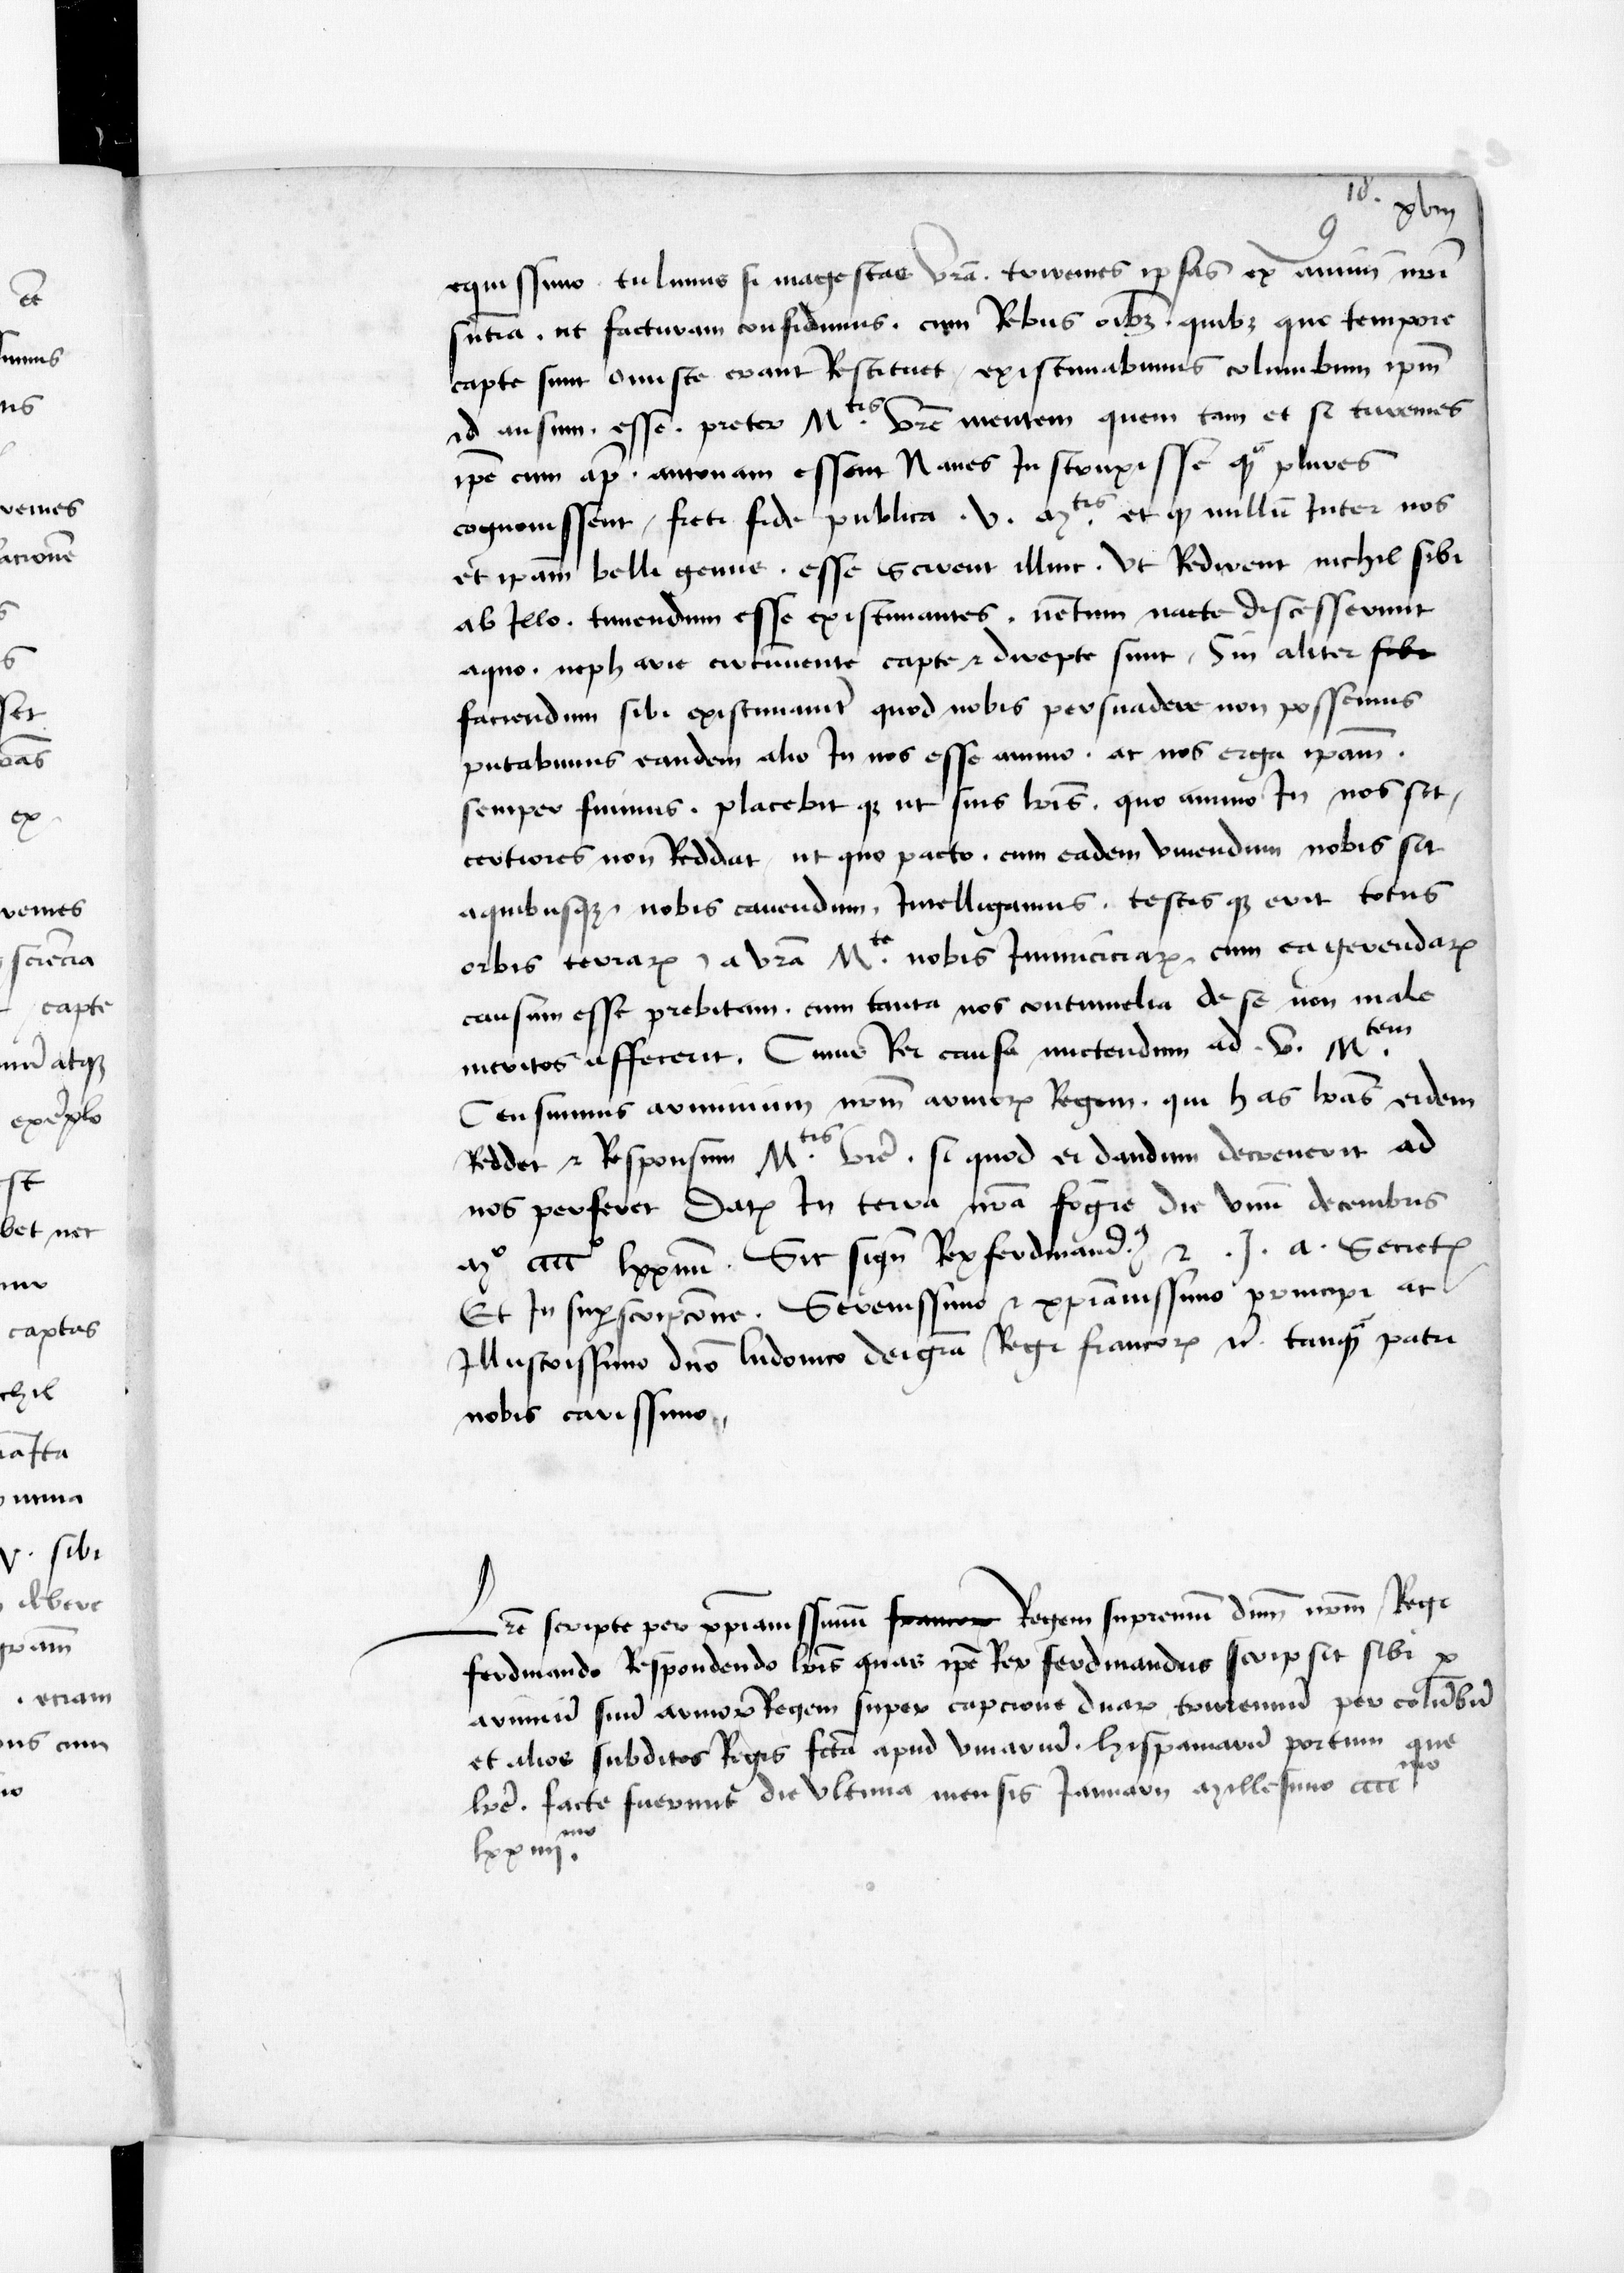 18. xviii
9
equissimo tulimus si magestas vrã. triremes ipsas ex animi nrĩ
sñtẽcia. ut facturam confidimus. cum Rebus oĩbꝫ. quibꝫ que tempore
capte sunt onuste erant Restituet, existimabimus columbum ipm̃
id ausum. esse. preter M.tis vrẽ mentem quem tam et si triremes
ipẽ cum ap̃. antonam essent Naues Instruxisse qꝫ plures
cognouissent, freti fide publica .v. M.tis et ꝙ nullũ Inter nos
et ipam̃ belli genus. esse Scirent illinc. Vt Redirent nichil sibi
ab Illo. timendum esse existimantes. uentum nacte discesserunt
aquo. nepharie circũuente capte ⁊ direpte sunt, Sin aliter sibi
faciendum sibi existimauerit quod nobis persuadere non possemus
putabimus eandem alio In nos esse animo. ac nos erga ipam̃.
semper fuimus. placebit qꝫ ut suis lrĩs. quo animo In nos sit,
certiores non Reddat, ut quo pacto. cum eadem viuendum nobis sit
aquibusqꝫ, nobis cauendum, Intelligamus. testis qꝫ erit totus
orbis terrarꝝ, a vrã M.te nobis Inimiciciarꝝ, cum ea gerendarꝝ
causam esse prebitam. cum tanta nos contumelia de se non male
meritos affecerit. Cuius Rei causa mictendum ad .v. M.tem
Censuimus ariminum nrm̃ armorꝝ Regem. qui has lrãs eidem
Reddet ⁊ Responsum M.tis vrẽ. si quod ei dandum decreuerit ad
nos perferet Datꝝ In terra nrã fogie die viiii decembris
Mo cccco lxxiiii. Sic sign̄ Rex ferdinandꝰ ⁊ .J. a. Secretꝝ
Et In suꝑscripcõne. Serenissimo ⁊ xpĩanissimo principi ac
Illustrissimo dnõ ludouico dei grã Regi francorꝝ ⁊c̃. tanqꝫ patri
nobis carissimo,,
Lrẽ scripte per xpĩanissimũ francorꝝ Regem supremũ dnm̃ nrm̃ Regi
ferdinando Respondendo lrĩs quas ipẽ Rex ferdinandus scripsit sibi ꝑ
ariminũ suũ armorꝝ Regem super capcione duarꝝ triremiũ per colũbũ
et alios subditos Regis fctã apud viuariũ. hispaniarũ portum que
lrẽ. facte fuerunt die vltima mensis Januarii Millesimo ccccmo
lxxiiii.mo